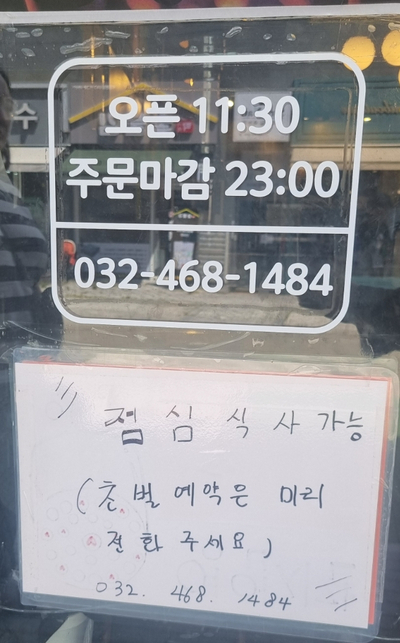 수
오픈 11:30
주문마감 23:00
032-468-1484
점심식사가능
(초벌예약은 미리
전화주세요)
032. 468. 1484